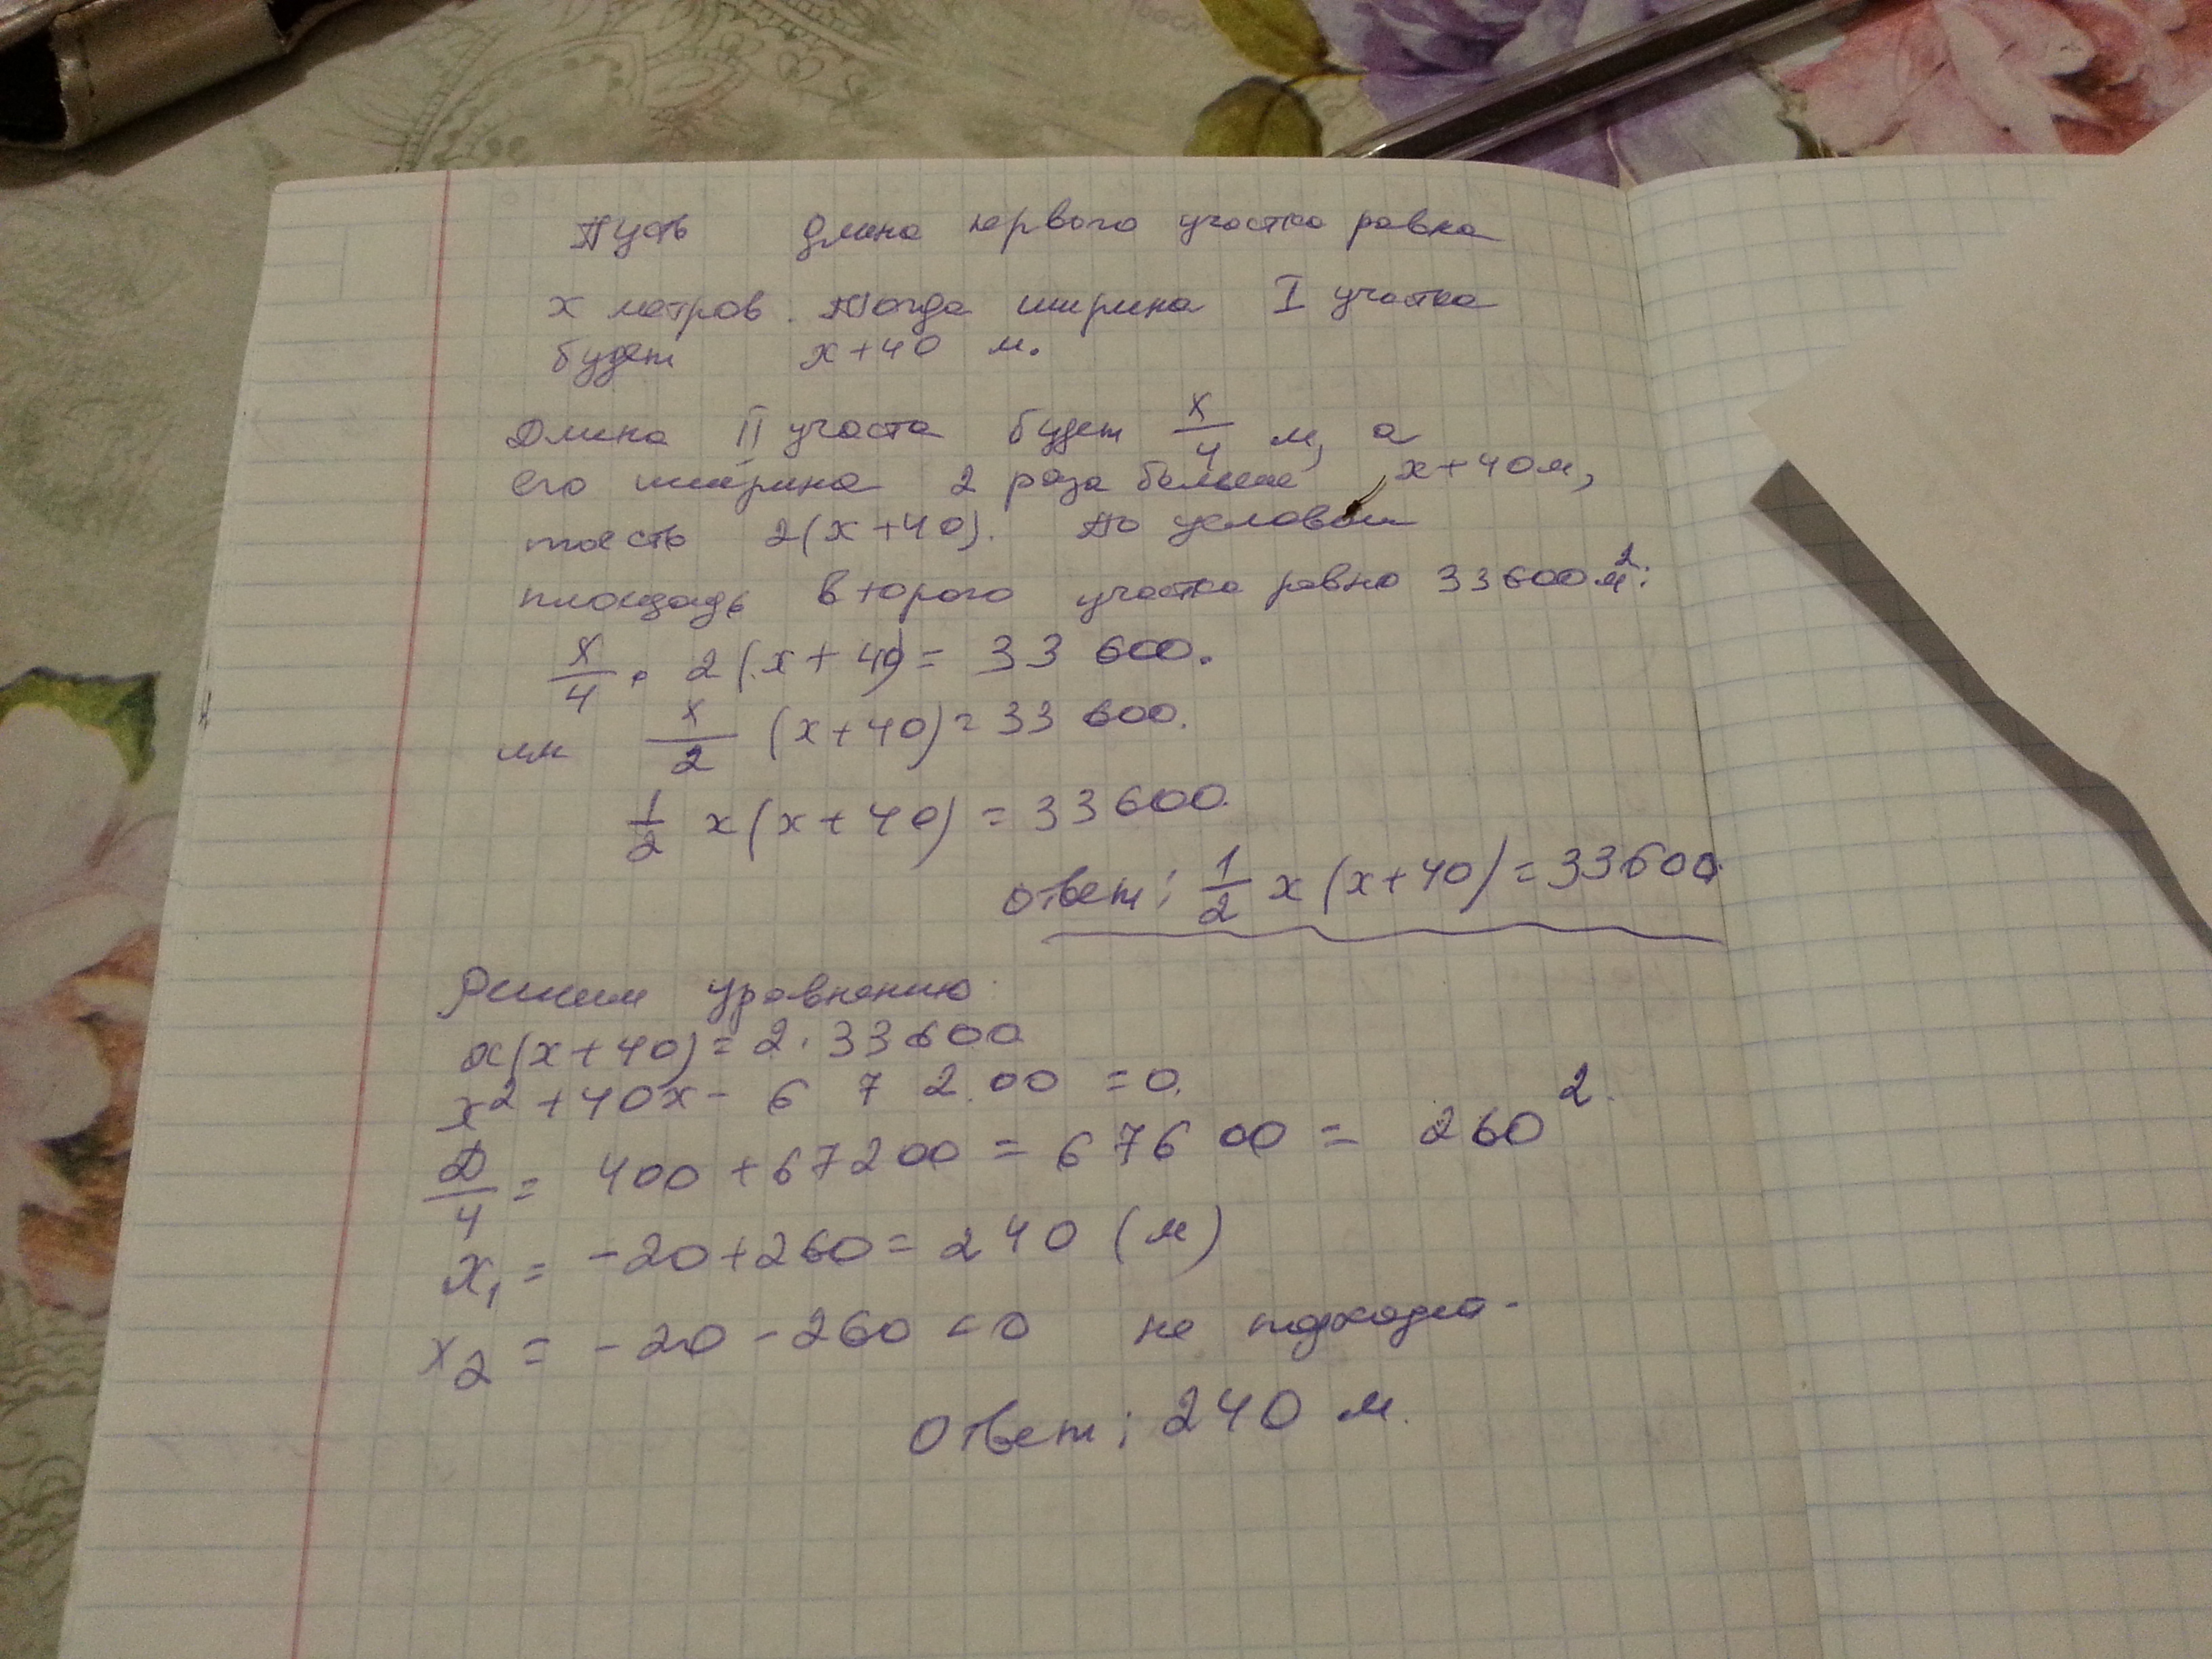 Пусть длина первого участка равна
x метров. Тогда ширина I участка
будет x+40 м.
Длина II участа будет x/4 м, а
его ширина 2 раза больше x+40м,
тоесть 2(x+40). По условии
площадь второго участка равно 33600 м²:
x/4 · 2(x+40) = 33 600.
или x/2 (x+40) = 33 600.
1/2 x(x+40) = 33600.
Ответ: 1/2 x(x+40) = 33600.
Решим уравнению
x(x+40) = 2·33600
x² + 40x - 67200 = 0.
D/4 = 400 + 67200 = 67600 = 260².
x₁ = -20+260 = 240 (м)
x₂ = -20-260 < 0 не подходит.
Ответ: 240 м.